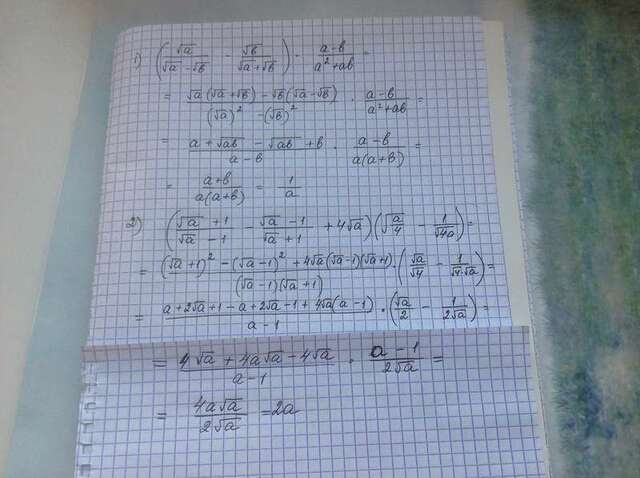 1) (√a/(√a-√b) - √b/(√a+√b)) · (a-b)/(a²+ab) =
= (√a(√a+√b)-√b(√a-√b))/((√a)²-(√b)²) · (a-b)/(a²+ab) =
= (a+√ab-√ab+b)/(a-b) · (a-b)/(a(a+b)) =
= (a+b)/(a(a+b)) = 1/a
2) ((√a+1)/(√a-1) - (√a-1)/(√a+1) + 4√a)(√(a/4) - 1/√4a) =
= ((√a+1)²-(√a-1)²+4√a(√a-1)(√a+1))/((√a-1)(√a+1)) · (√a/√4 - 1/(√4·√a)) =
= (a+2√a+1-a+2√a-1+4√a(a-1))/(a-1) · (√a/2 - 1/(2√a)) =
= (4√a+4a√a-4√a)/(a-1) · (a-1)/(2√a) =
= 4a√a/(2√a) = 2a